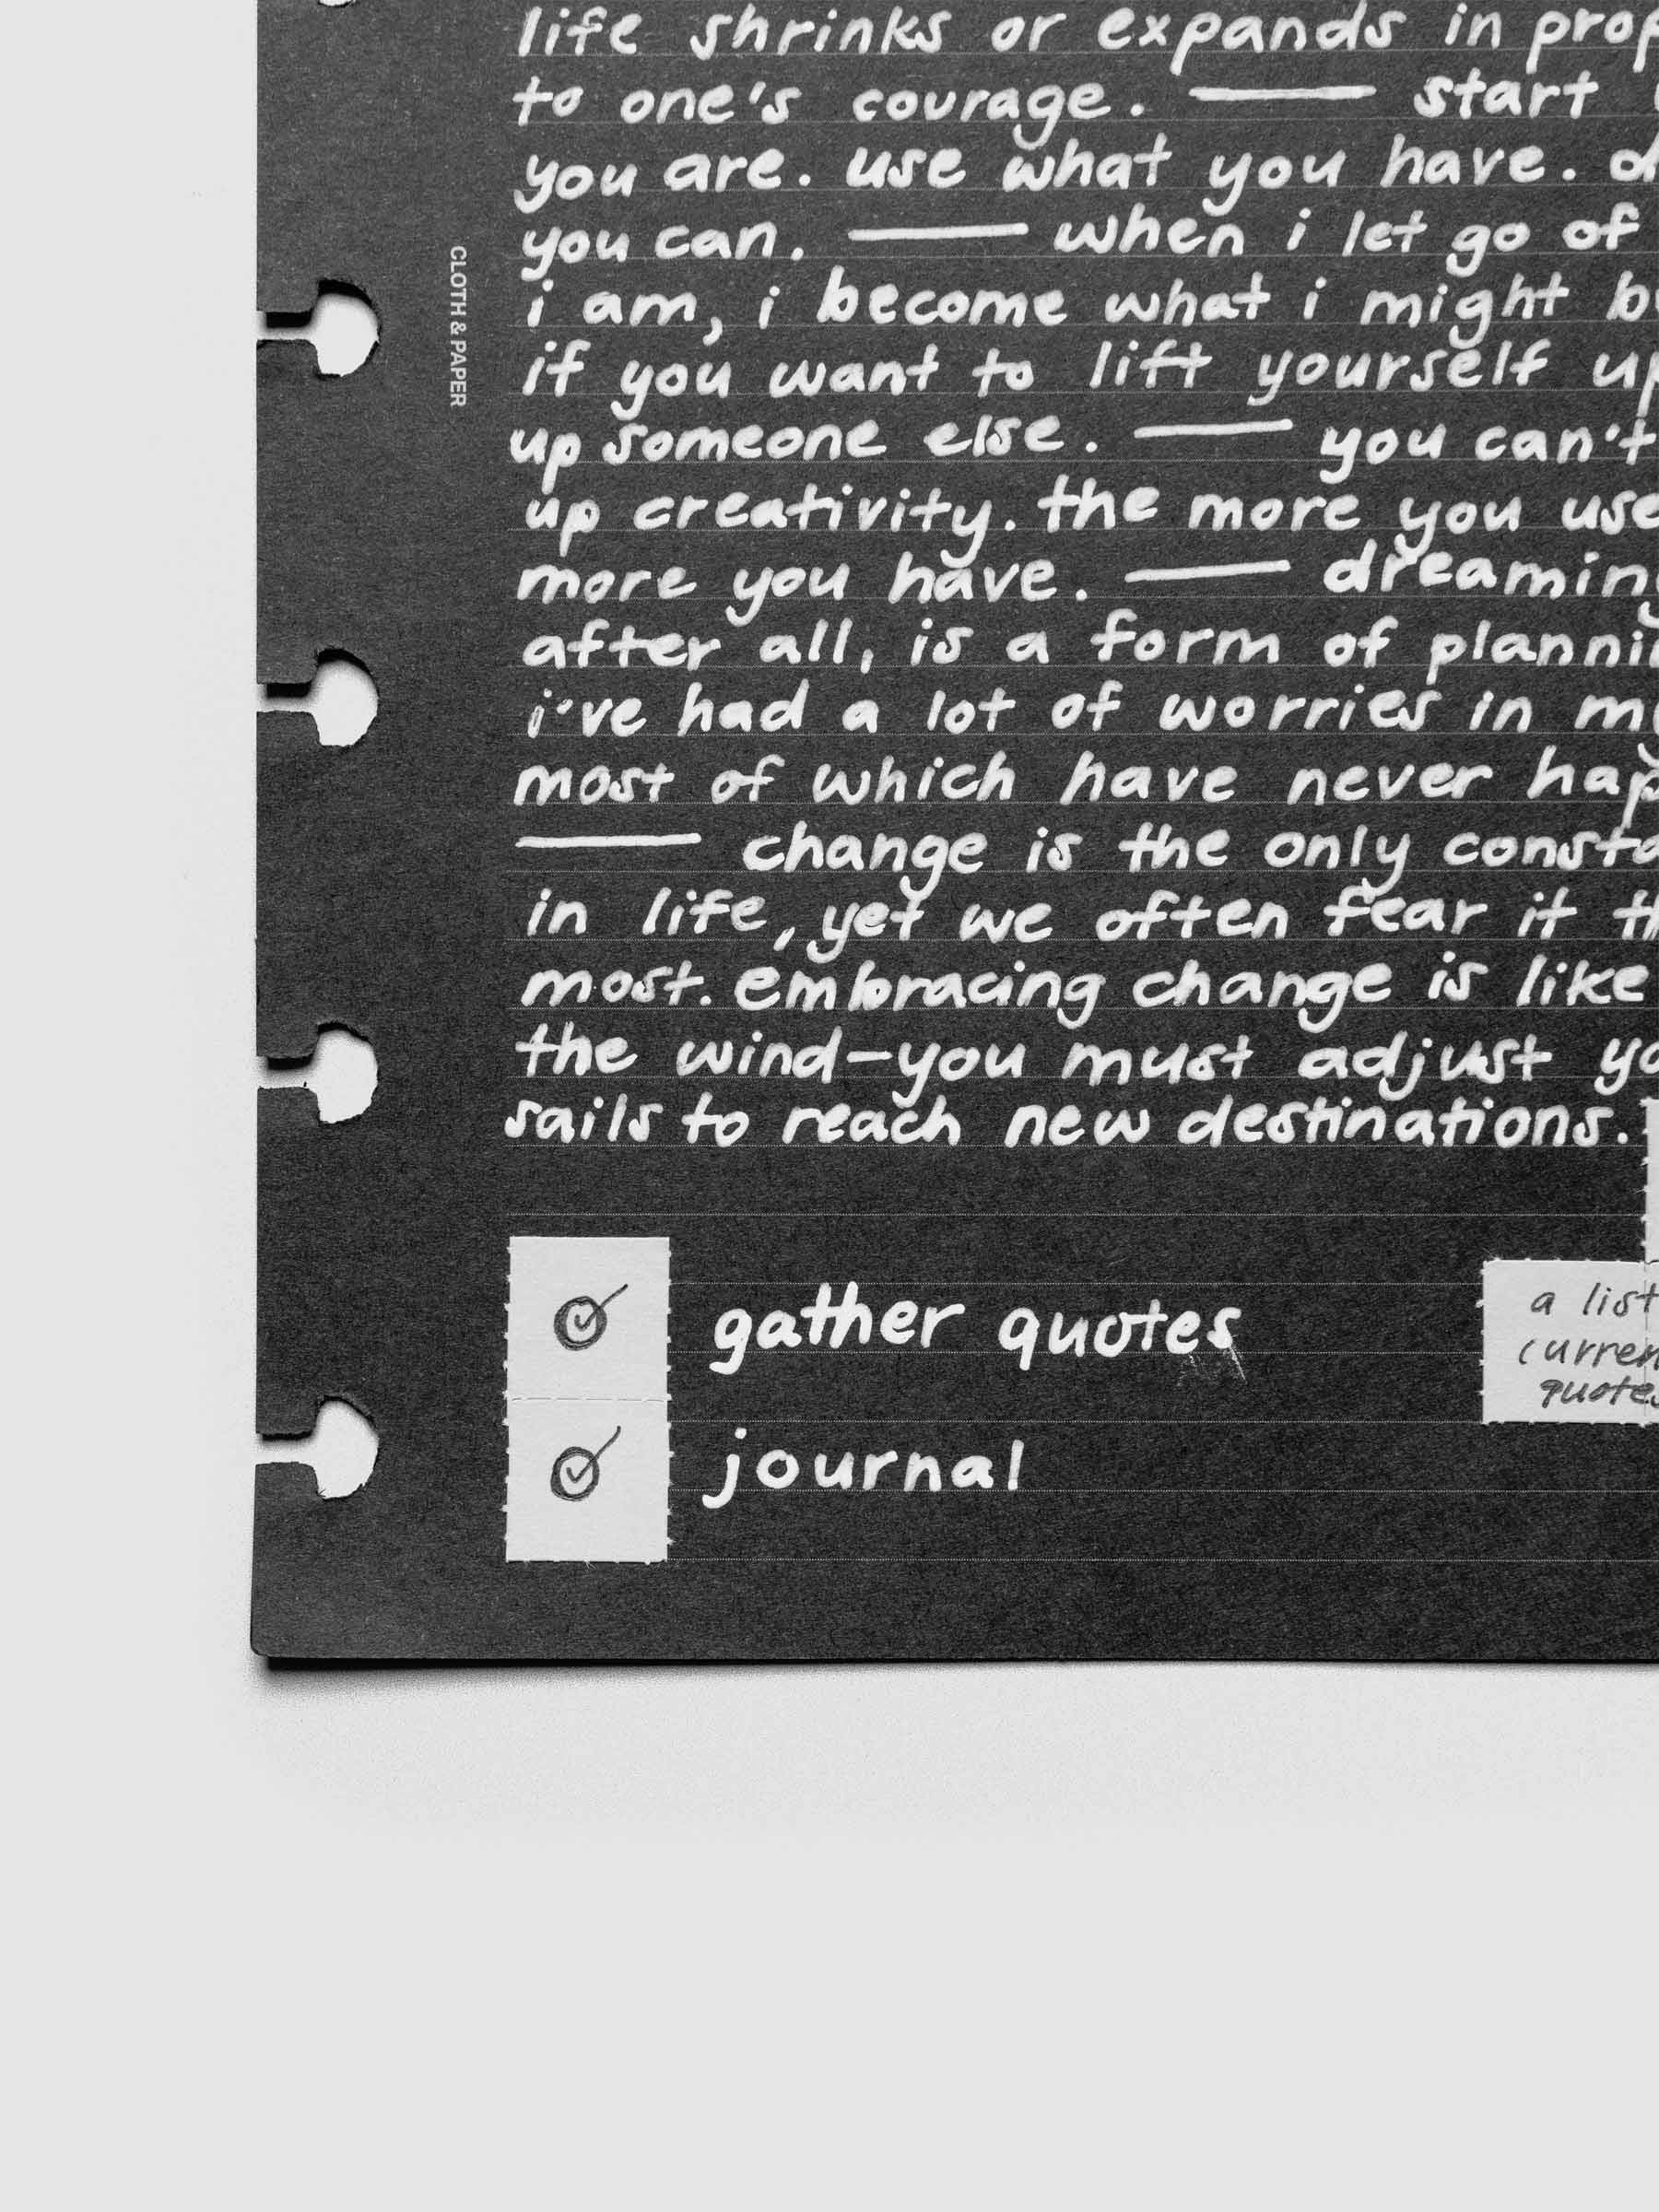 life shrinks or expands in prop
to one's courage. —— start
you are. use what you have. d
you can. —— when i let go of
i am, i become what i might b
if you want to lift yourself up
up someone else. —— you can't
up creativity. the more you use
more you have. —— dreaming
after all, is a form of planni
i've had a lot of worries in my
most of which have never hap
—— change is the only consta
in life, yet we often fear it th
most. embracing change is like
the wind—you must adjust yo
sails to reach new destinations.
CLOTH & PAPER
gather quotes
journal
a list
curren
quotes